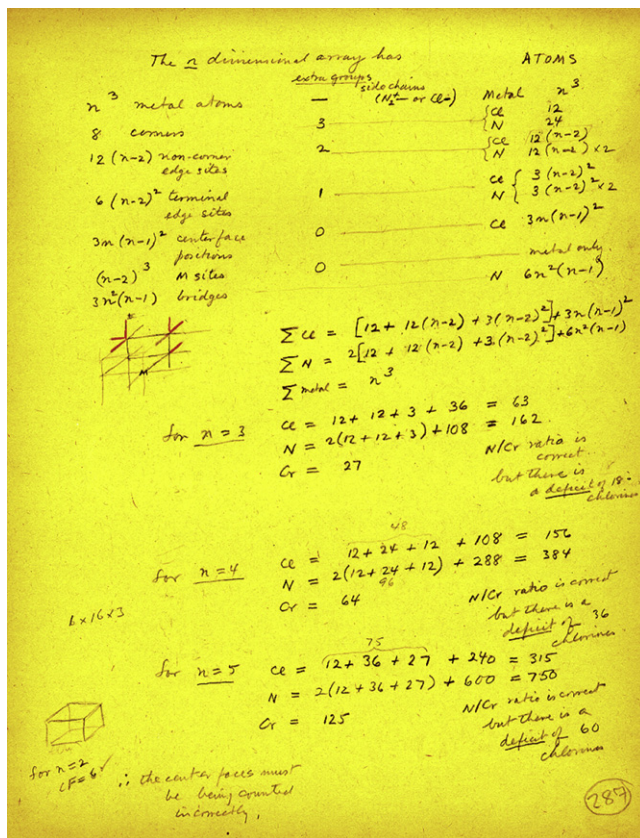 The n dimensional array has
ATOMS
extra groups
side chains
(N₂⁺— or Cl—)
Metal n³
n³ metal atoms —
8 corners 3 { Cl 12
N 24
12(n-2) non-corner edge sites 2 { Cl 12(n-2)
N 12(n-2) x2
6(n-2)² terminal edge sites 1 Cl { 3(n-2)²
N 3(n-2)² x2
3n(n-1)² center face positions 0 Cl 3n(n-1)²
(n-2)³ M sites 0 metal only.
3n²(n-1) bridges N 6n²(n-1)
M
ΣCl = [12 + 12(n-2) + 3(n-2)²] + 3n(n-1)²
ΣN = 2[12 + 12(n-2) + 3(n-2)²] + 6n²(n-1)
Σmetal = n³
for n=3
Cl = 12 + 12 + 3 + 36 = 63
N = 2(12+12+3) + 108 = 162
Cr = 27
N/Cr ratio is
correct
but there is
a deficit of 18
chlorines
for n=4
48
Cl = 12 + 24 + 12 + 108 = 156
N = 2(12+24+12) + 288 = 384
96
Cr = 64
N/Cr ratio is correct
but there is a
deficit of 36
chlorines
6x16x3
for n=5
75
Cl = 12 + 36 + 27 + 240 = 315
N = 2(12+36+27) + 600 = 750
Cr = 125
N/Cr ratio is correct
but there is a
deficit of 60
chlorines
for n=2
CF=6✓
∴ the center faces must
be being counted
incorrectly.
287